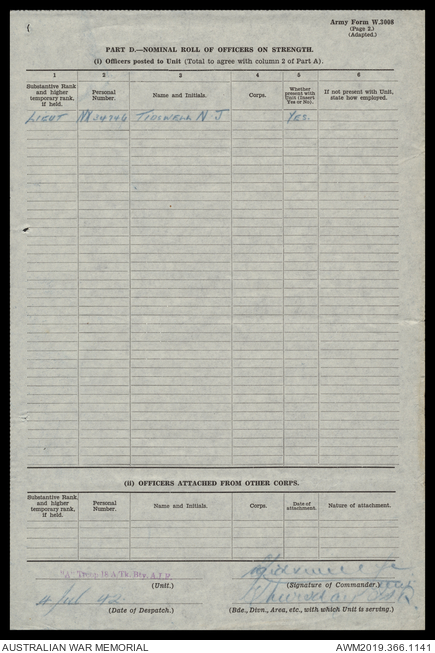 Army Form W.3008
(Page 2.)
(Adapted.)
PART D.—NOMINAL ROLL OF OFFICERS ON STRENGTH.
(i) Officers posted to Unit (Total to agree with column 2 of Part A).
1 2 3 4 5 6
Substantive Rank and higher temporary rank, if held.
Personal Number.
Name and Initials.
Corps.
Whether present with Unit (Insert Yes or No).
If not present with Unit, state how employed.
LIEUT TIDSWELL N J YES.
(ii) OFFICERS ATTACHED FROM OTHER CORPS.
Substantive Rank, and higher temporary rank, if held.
Personal Number.
Name and Initials.
Corps.
Date of attachment.
Nature of attachment.
"A" Troop 16 A/Tk. Bty. A.I.F.
(Unit.)
(Signature of Commander.)
4 Jul 42
(Date of Despatch.)
(Bde., Divn., Area, etc., with which Unit is serving.)
AUSTRALIAN WAR MEMORIAL
AWM2019.366.1141